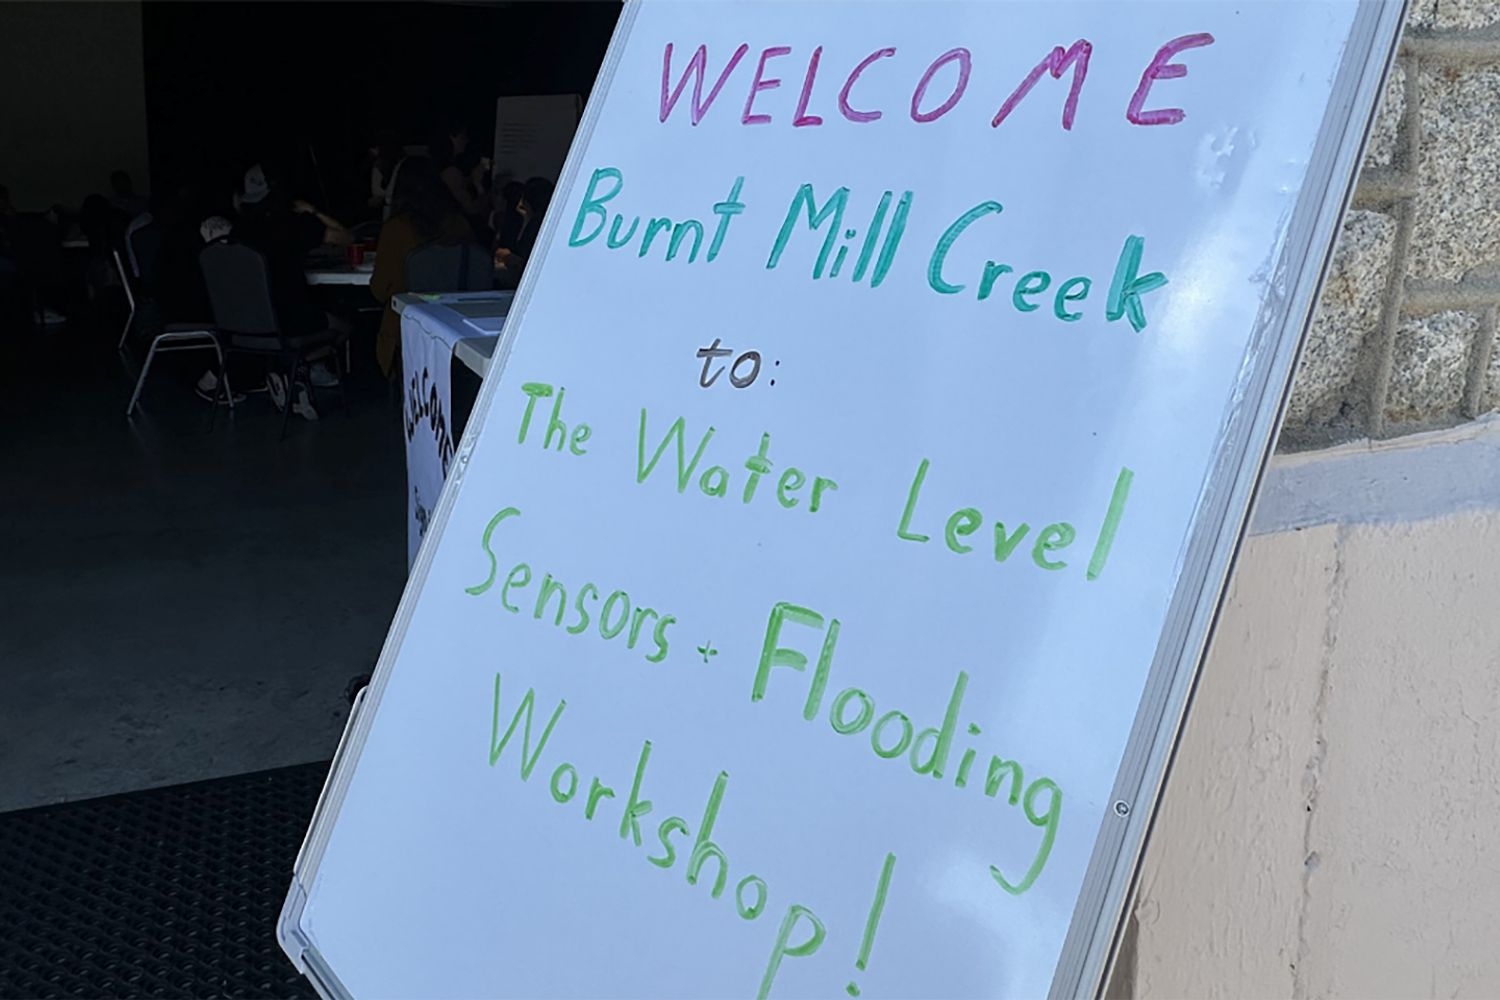 WELCOME
Burnt Mill Creek
to:
The Water Level
Sensors + Flooding
Workshop!
WELCOME